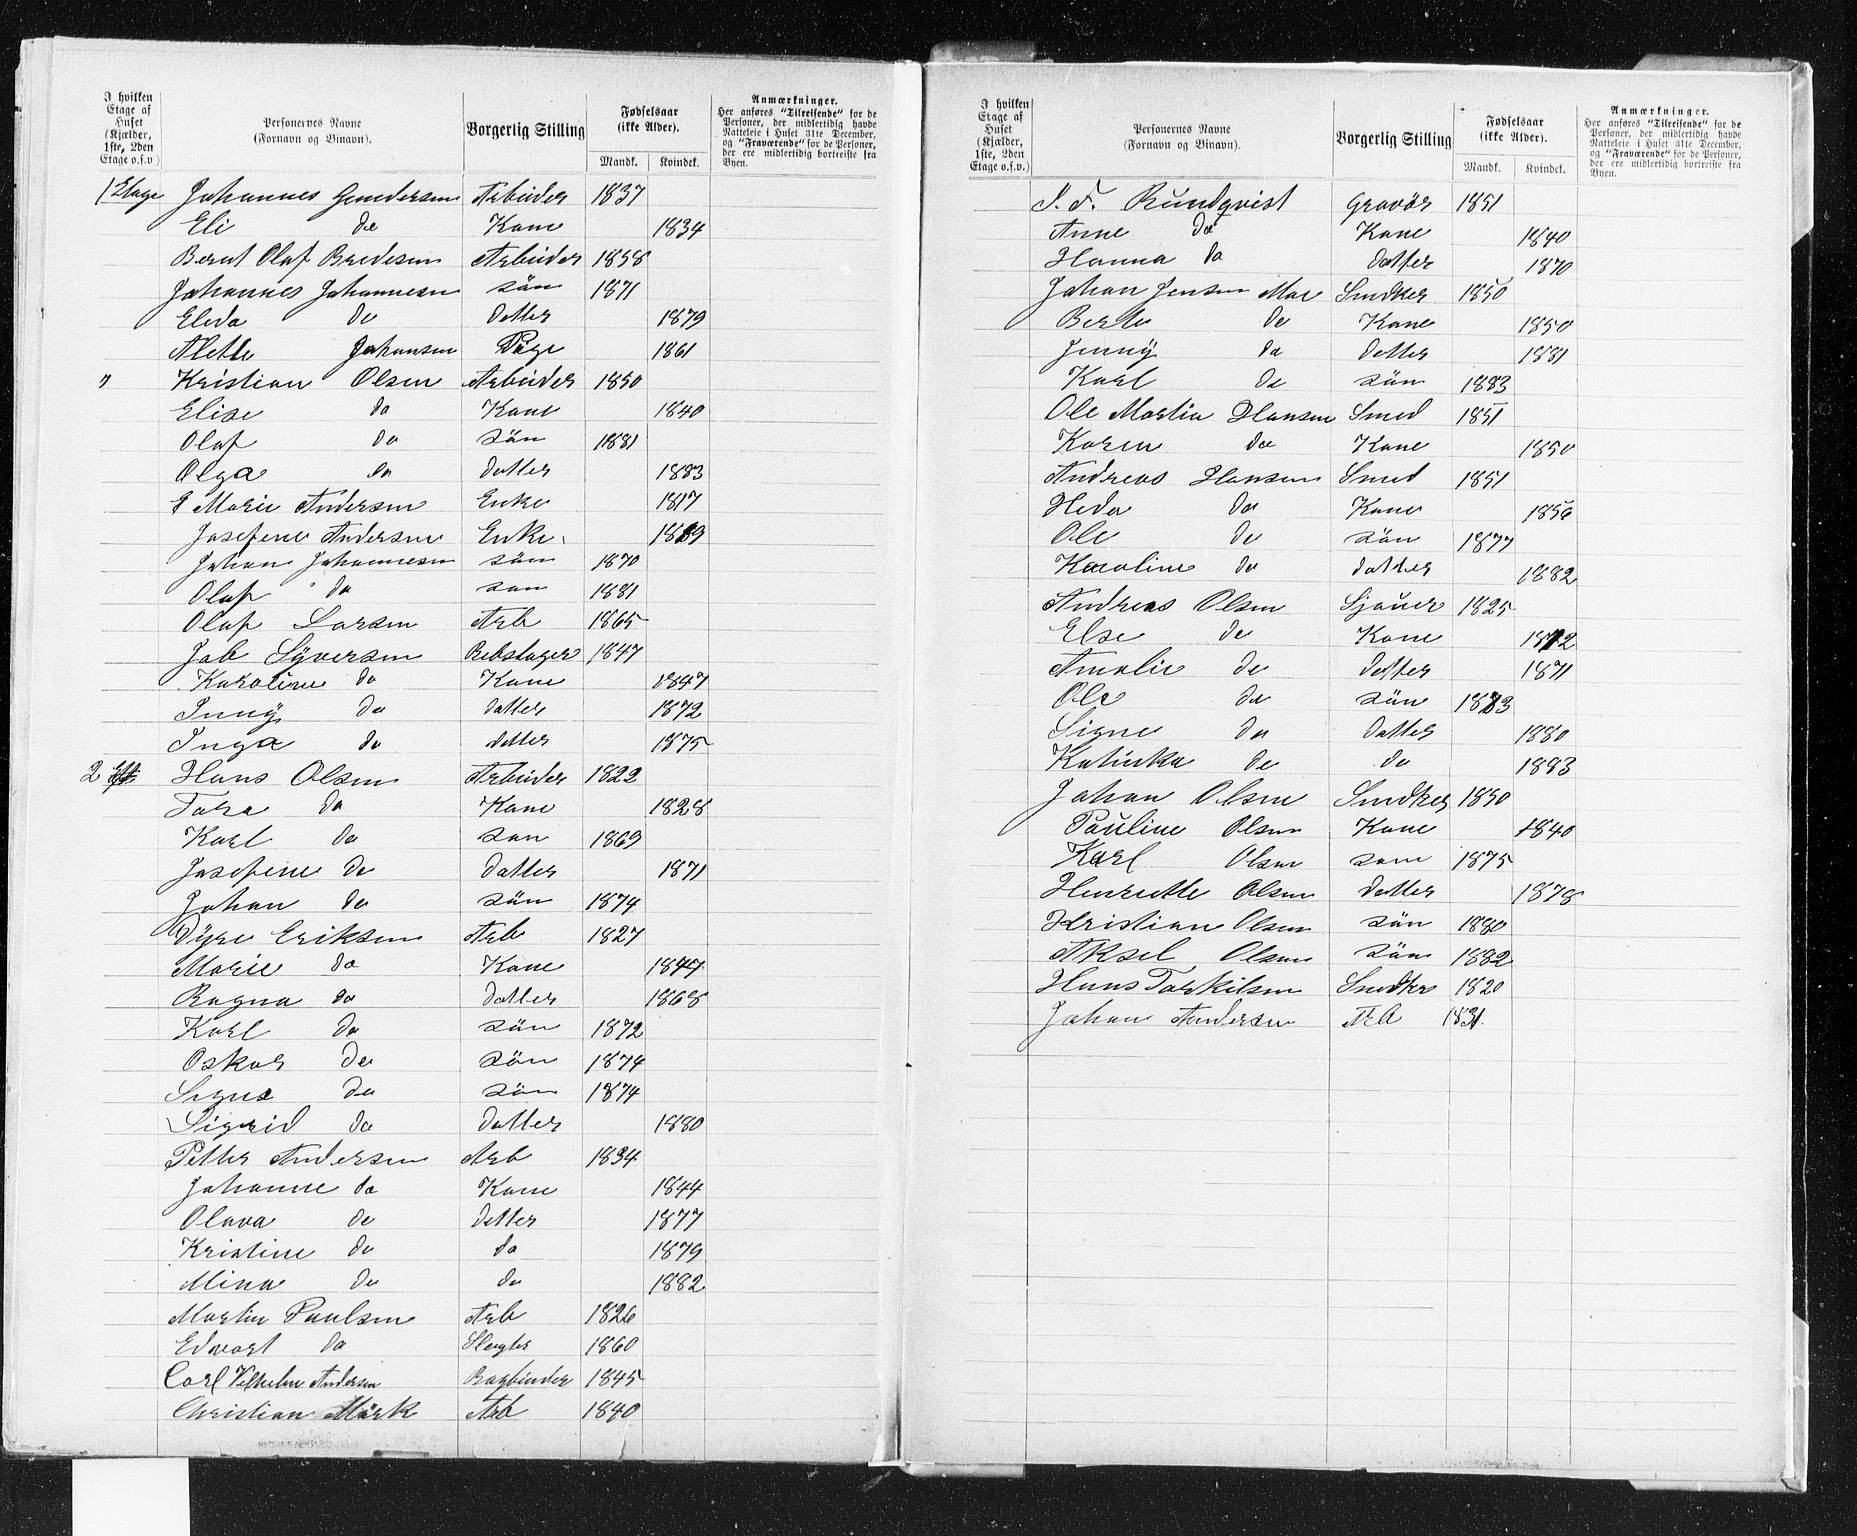 I hvilken Etage af Huset (Kjælder, 1ste, 2den Etage o.s.v.)
Personernes Navne (Fornavn og Binavn).
Borgerlig Stilling
Fødselsaar (ikke Alder).
Mandk. Kvindek.
Anmærkninger.
Her anføres "Tilreisende" for de Personer, der midlertidig havde Natteleie i Huset 31te December, og "Fraværende" for de Personer, der ere midlertidig bortreiste fra Byen.
1 Etage Johannes Gundersen Arbeider 1837
Eli do Kone 1834
Bernt Olaf Bredesen Arbeider 1858
Johannes Johannesen sön 1871
Eleda do datter 1879
Alette Johansen Pige 1861
" Kristian Olsen Arbeider 1850
Elise do Kone 1840
Olaf do sön 1881
Olga do datter 1883
E Marie Andersen Enke 1817
Josefine Andersen Enke
Johan Johannesen sön 1870
Olaf do søn 1881
Olaf Larsen Arb 1865
Jab Syversen Rebslager 1847
Karoline do Kone 1847
Jenny do datter 1872
Inga do datter 1875
2 Et Hans Olsen Arbeider 1822
Tora do Kone 1828
Karl do søn 1869
Josefine do datter 1871
Johan do sön 1874
Dyre Eriksen Arb 1827
Marie do Kone 1847
Ragna do datter 1868
Karl do sön 1872
Oskar do sön 1874
Signe do sön 1874
Sigrid do datter 1880
Petter Andersen Arb 1834
Johanne do Kone 1844
Olava do datter 1877
Kristine do do 1879
Mina do do 1882
Martin Paulsen Arb 1826
Edvart do Slagter 1860
Carl Vilhelm Andersen Bogbinder 1845
Christian Mörk Arb 1840
I hvilken Etage af Huset (Kjælder, 1ste, 2den Etage o.s.v.)
Personernes Navne (Fornavn og Binavn).
Borgerlig Stilling
Fødselsaar (ikke Alder).
Mandk. Kvindek.
Anmærkninger.
Her anføres "Tilreisende" for de Personer, der midlertidig havde Natteleie i Huset 31te December, og "Fraværende" for de Personer, der ere midlertidig bortreiste fra Byen.
J. F. Rundqvist Gravör 1851
Anne do Kone 1840
Hanna do datter 1870
Johan Jensen Moe Snedker 1850
Berte do Kone 1850
Jenny do datter 1881
Karl do sön 1883
Ole Martin Hansen Smed 1851
Karen do Kone 1850
Andreas Hansen Smed 1851
Heda do Kone 1856
Ole do sön 1877
Karoline do datter 1882
Andreas Olsen Sjauer 1825
Else do Kone
Amalie do datter 1871
Ole do sön
Signe do datter 1880
Katinka do do 1883
Johan Olsen Snedker 1850
Pauline Olsen Kone 1840
Karl Olsen søn 1875
Henriette Olsen datter 1878
Kristian Olsen sön 1880
Aksel Olsen sön 1882
Hans Torkilsen Snedker 1820
Johan Andersen Arb 1831.